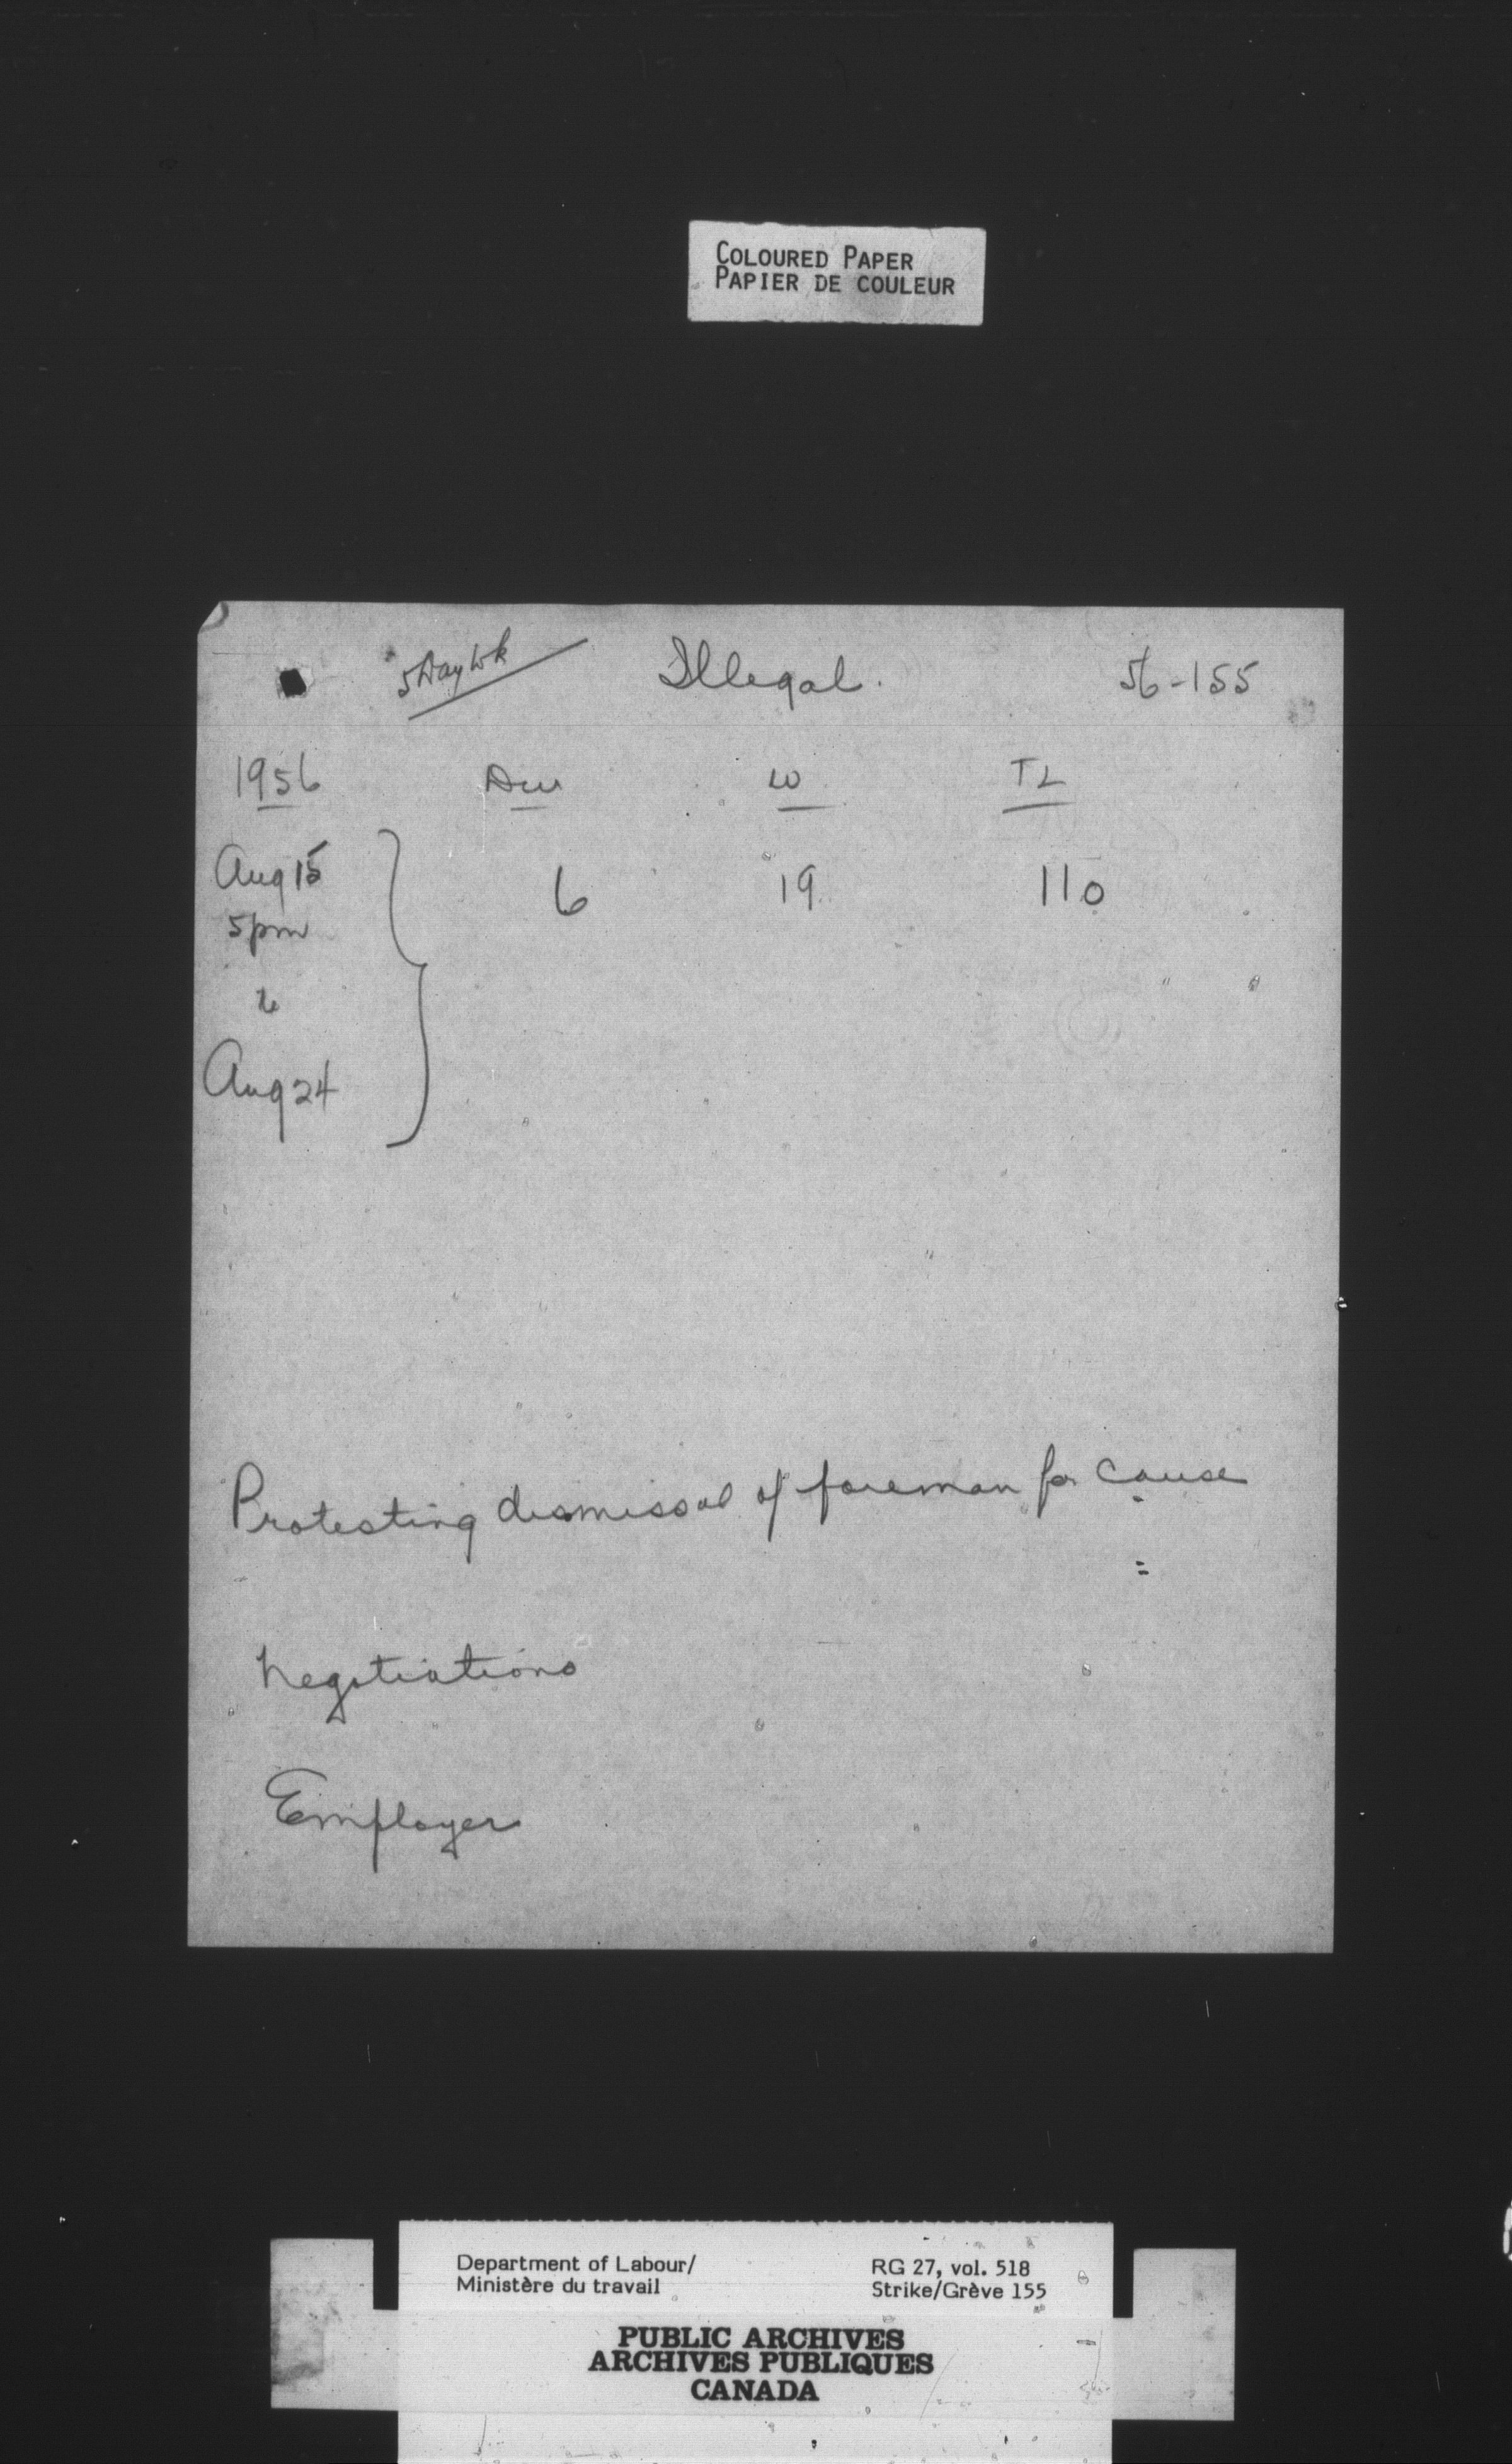 COLOURED PAPER
PAPIER DE COULEUR
5 Day Wk Illegal. 56-155
1956 W TL
Aug 15 6 19 110
5pm
to
Aug 24
Protesting dismissal of foreman for cause
=
negotiations
Employer
Department of Labour/ RG 27, vol. 518
Ministère du travail Strike/Grève 155
PUBLIC ARCHIVES
ARCHIVES PUBLIQUES
CANADA